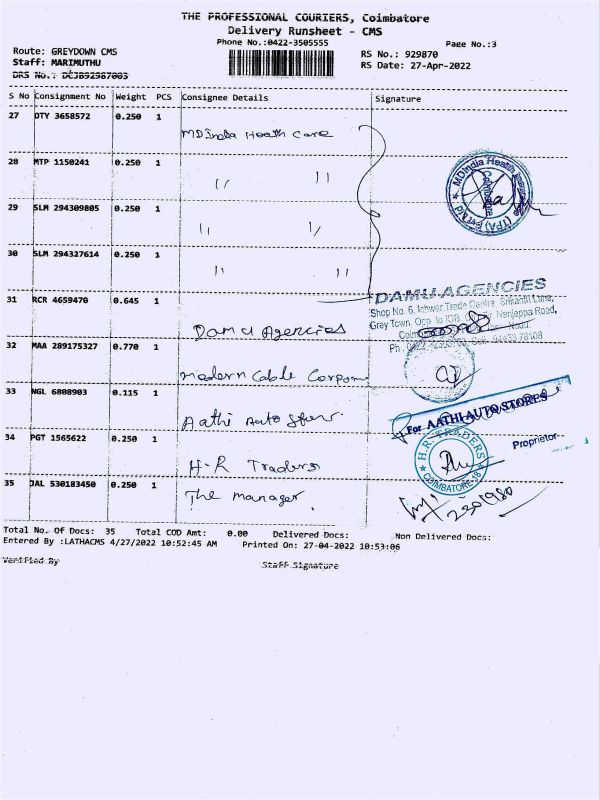 THE PROFESSIONAL COURIERS, Coimbatore
Delivery Runsheet - CMS
Phone No.:0422-3505555
Page No.:3
Route: GREYDOWN CMS
RS No.: 929870
Staff: MARIMUTHU
RS Date: 27-Apr-2022
DRS No.: DCJB92987003
S No Consignment No Weight PCS Consignee Details Signature
27 OTY 3658572 0.250 1
MDIndia Heath Care
28 MTP 1150241 0.250 1
" "
29 SLM 294309805 0.250 1
" "
30 SLM 294327614 0.250 1
" "
31 RCR 4659470 0.645 1
Damu Agencies
32 MAA 289175327 0.770 1
Modern Cable Corpon
33 NGL 6808903 0.115 1
Aathi Auto Stores.
34 PGT 1565622 0.250 1
H.R Traders
35 JAL 530183450 0.250 1
The manager.
MDIndia Health Insurance (TPA) Pvt Ltd
DAMU AGENCIES
Shop No. 6, Ishwer Trade Centre, Srikanth Lane,
Grey Town, Opp. to IOB Nanjappa Road,
For AATHI AUTO STORES
Proprietor
H.R. TRADERS
COIMBATORE-18
Total No. Of Docs: 35 Total COD Amt: 0.00 Delivered Docs: Non Delivered Docs:
Entered By :LATHACMS 4/27/2022 10:52:45 AM Printed On: 27-04-2022 10:53:06
Verified By Staff Signature